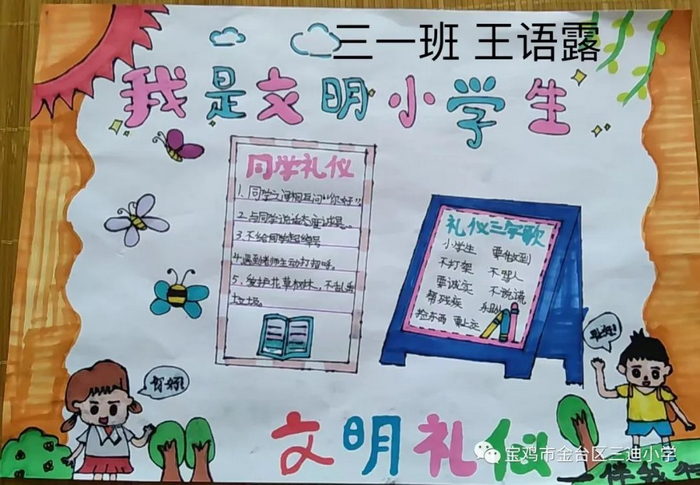 三一班 王语露
我是文明小学生
同学礼仪
1、同学之间相互问“你好”。
2、与同学说话态度诚恳。
3、不给同学起绰号
4、遇到老师主动打招呼。
5、爱护花草树木，不乱丢
垃圾。
礼仪三字歌
小学生 要做到
不打架 不骂人
要诚实 不说谎
帮残疾
拾东西 要上交
你好!
文明礼仪
宝鸡市金台区三迪小学